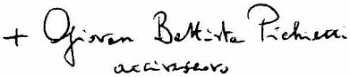 + Giovan Battista Pichierri
arcivescovo